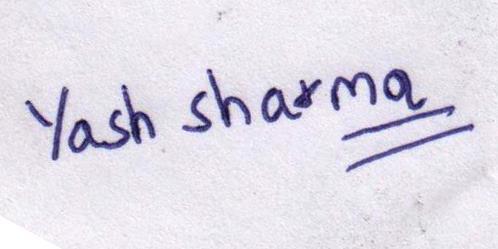 Yash sharma